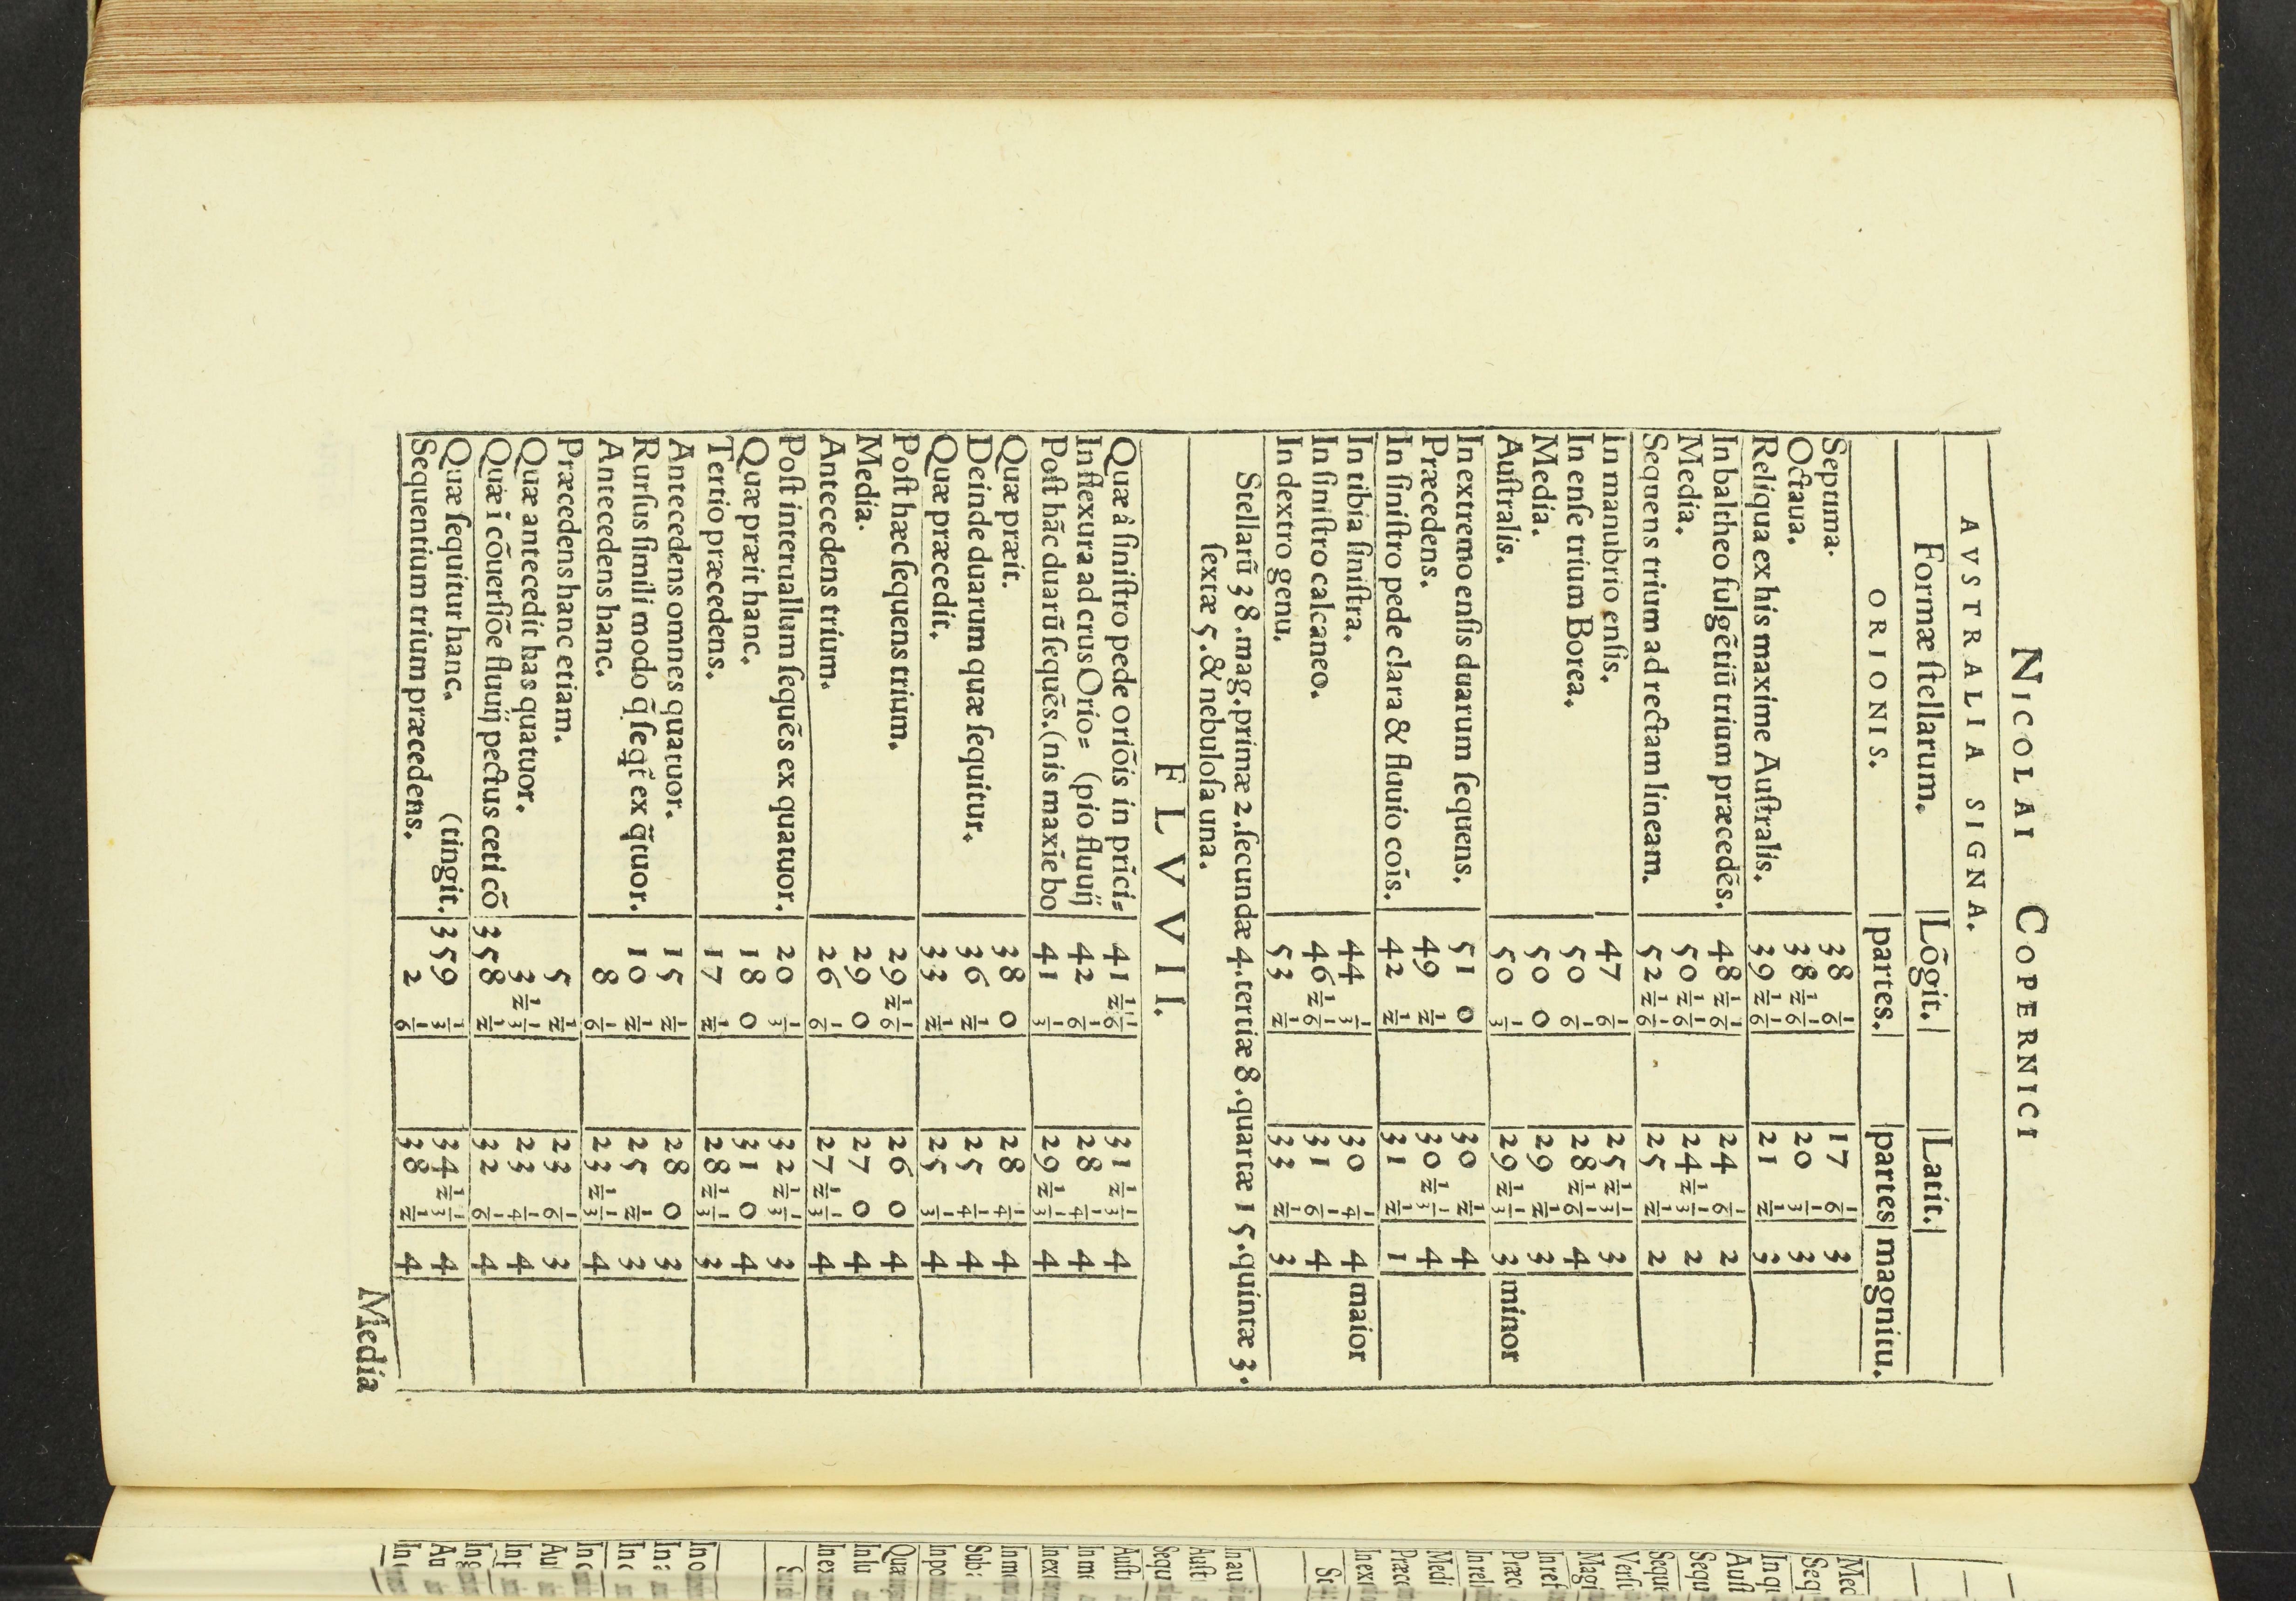 NICOLAI COPERNICI
AVSTRALIA SIGNA.
Formæ ſtellarum. Lõgit. Latit.
ORIONIS. partes. partes magnitu.
Septima. 38 1/6 17 1/6 3
Octaua. 38 1/2 1/6 20 1/3 3
Reliqua ex his maxime Auſtralis. 39 1/2 1/6 21 1/2 3
In baltheo fulgẽtiũ trium præcedẽs. 48 1/2 1/6 24 1/6 2
Media. 50 1/2 1/6 24 1/2 1/3 2
Sequens trium ad rectam lineam. 52 1/2 1/6 25 1/2 2
In manubrio enſis. 47 1/6 25 1/2 1/3 3
In enſe trium Borea. 50 1/6 28 1/2 1/6 4
Media. 50 0 29 1/2 3
Auſtralis. 50 1/3 29 1/2 1/3 3 minor
In extremo enſis duarum ſequens. 51 0 30 1/2 4
Præcedens. 49 1/2 30 1/2 1/3 4
In ſiniſtro pede clara & fluuio coĩs. 42 1/2 31 1/2 1
In tibia ſiniſtra. 44 1/3 30 1/4 4 maior
In ſiniſtro calcaneo. 46 1/2 1/6 31 1/6 4
In dextro genu. 53 1/2 33 1/2 3
Stellarũ 38. mag. primæ 2. ſecundæ 4. tertiæ 8. quartæ 15. quintæ 3.
ſextæ 5. & nebuloſa una.
FLVVII.
Quæ à ſiniſtro pede oriõis in prĩci= 41 1/2 1/6 31 1/2 1/3 4
In flexura ad crus Orio= (pio fluuij 42 1/6 28 1/4 4
Poſt hãc duarũ ſequẽs. (nis maxĩe bo 41 1/3 29 1/2 1/3 4
Quæ præit. 38 0 28 1/4 4
Deinde duarum quæ ſequitur. 36 1/2 25 1/4 4
Quæ præcedit. 33 1/2 25 1/3 4
Poſt hæc ſequens trium. 29 1/2 1/6 26 0 4
Media. 29 0 27 0 4
Antecedens trium. 26 1/6 27 1/2 1/3 4
Poſt interuallum ſequẽs ex quatuor. 20 1/3 32 1/2 1/3 3
Quæ præit hanc. 18 0 31 0 4
Tertio præcedens. 17 1/2 28 1/2 1/3 3
Antecedens omnes quatuor. 15 1/2 28 0 3
Rurſus ſimili modo q̃ ſeqt̃ ex q̃tuor. 10 1/2 25 1/2 3
Antecedens hanc. 8 1/6 23 1/2 1/3 4
Præcedens hanc etiam. 5 1/2 23 1/6 3
Quæ antecedit has quatuor. 3 1/2 1/3 23 1/4 4
Quæ ĩ cõuerſiõe fluuij pectus ceti cõ 358 1/2 32 1/6 4
Quæ ſequitur hanc. (tingit. 359 1/3 34 1/2 1/3 4
Sequentium trium præcedens. 2 1/6 38 1/2 4
Media